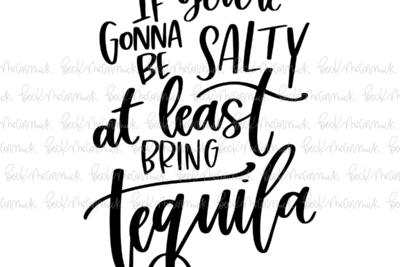 IF you're
GONNA
BE SALTY
at least
BRING
tequila